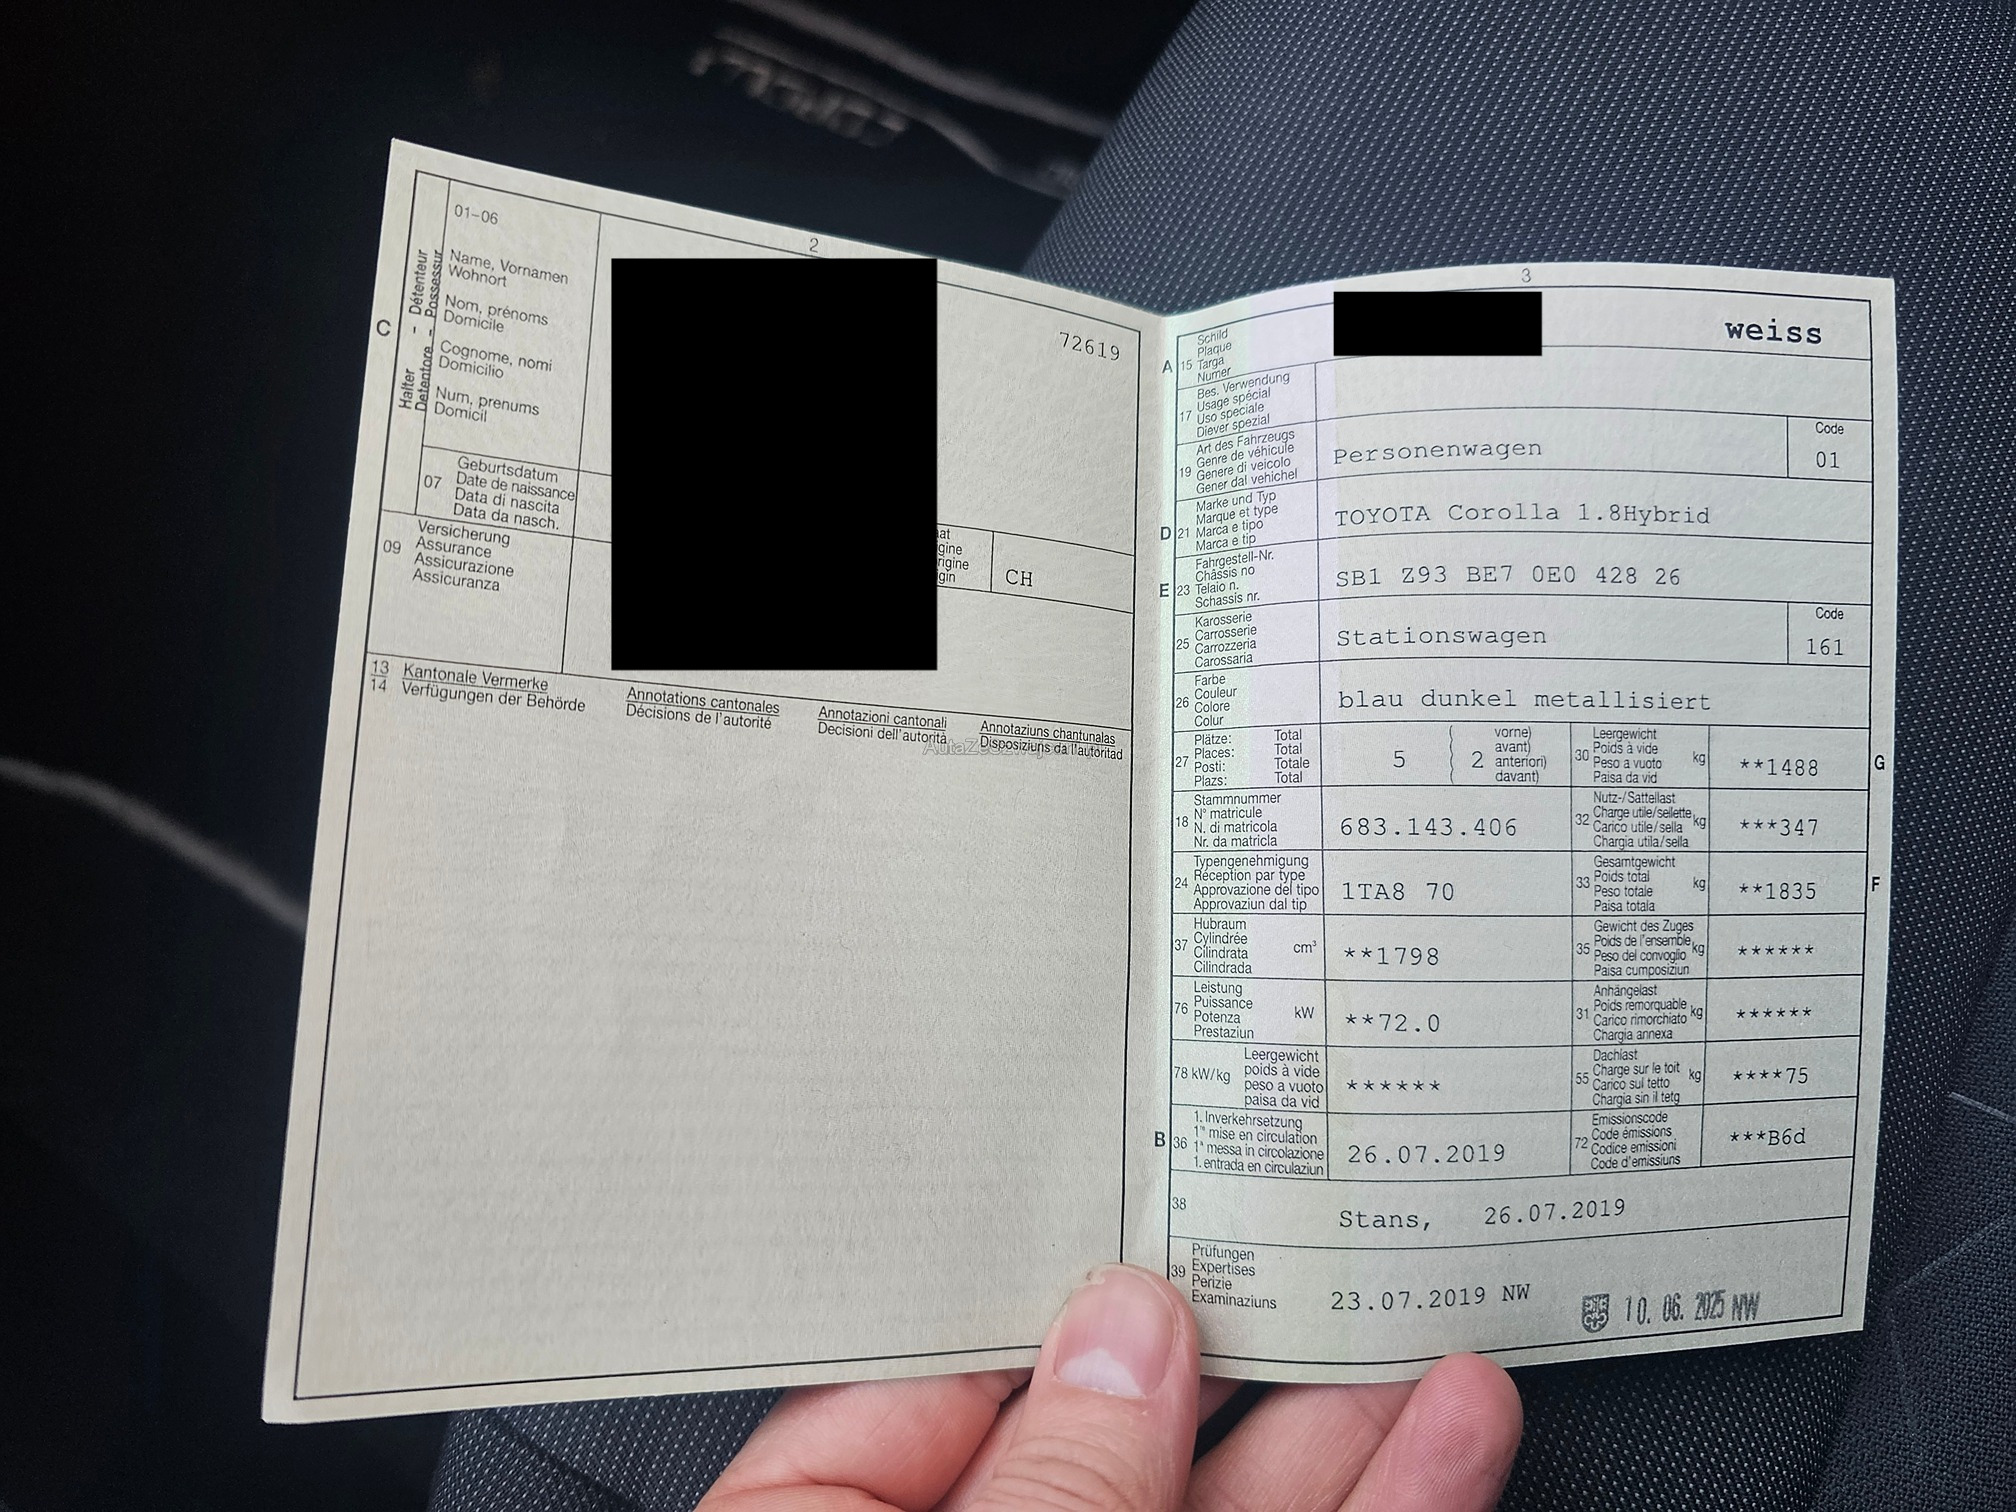 2
01-06
Halter - Détenteur
Detentore - Possessur
C
Name, Vornamen
Wohnort
Nom, prénoms
Domicile
Cognome, nomi
Domicilio
Num, prenums
Domicil
72619
07
Geburtsdatum
Date de naissance
Data di nascita
Data da nasch.
CH
09
Versicherung
Assurance
Assicurazione
Assicuranza
13
14
Kantonale Vermerke
Verfügungen der Behörde
Annotations cantonales
Décisions de l'autorité
Annotazioni cantonali
Decisioni dell'autorità
Annotaziuns chantunalas
Disposiziuns da l'autoritad
3
A 15
Schild
Plaque
Targa
Numer
weiss
17
Bes. Verwendung
Usage spécial
Uso speciale
Diever spezial
19
Art des Fahrzeugs
Genre de véhicule
Genere di veicolo
Gener dal vehichel
Personenwagen
Code
01
D 21
Marke und Typ
Marque et type
Marca e tipo
Marca e tip
TOYOTA Corolla 1.8Hybrid
E 23
Fahrgestell-Nr.
Châssis no
Telaio n.
Schassis nr.
SB1 Z93 BE7 0E0 428 26
25
Karosserie
Carrosserie
Carrozzeria
Carossaria
Stationswagen
Code
161
26
Farbe
Couleur
Colore
Colur
blau dunkel metallisiert
27
Plätze: Total
Places: Total
Posti: Totale
Plazs: Total
5
2
vorne)
avant)
anteriori)
davant)
30
Leergewicht
Poids à vide
Peso a vuoto
Paisa da vid
kg
**1488
G
18
Stammnummer
N° matricule
N. di matricola
Nr. da matricla
683.143.406
32
Nutz-/Sattellast
Charge utile/sellette
Carico utile/sella
Chargia utila/sella
kg
***347
24
Typengenehmigung
Réception par type
Approvazione del tipo
Approvaziun dal tip
1TA8 70
33
Gesamtgewicht
Poids total
Peso totale
Paisa totala
kg
**1835
F
37
Hubraum
Cylindrée
Cilindrata
Cilindrada
cm³
**1798
35
Gewicht des Zuges
Poids de l'ensemble
Peso del convoglio
Paisa cumposiziun
kg
******
76
Leistung
Puissance
Potenza
Prestaziun
kW
**72.0
31
Anhängelast
Poids remorquable
Carico rimorchiato
Chargia annexa
kg
******
78 kW/kg
Leergewicht
poids à vide
peso a vuoto
paisa da vid
******
55
Dachlast
Charge sur le toit
Carico sul tetto
Chargia sin il tetg
kg
****75
B 36
1. Inverkehrsetzung
1re mise en circulation
1a messa in circolazione
1. entrada en circulaziun
26.07.2019
72
Emissionscode
Code émissions
Codice emissioni
Code d'emissiuns
***B6d
38
Stans, 26.07.2019
39
Prüfungen
Expertises
Perizie
Examinaziuns
23.07.2019 NW
10. 06. 2025 NW